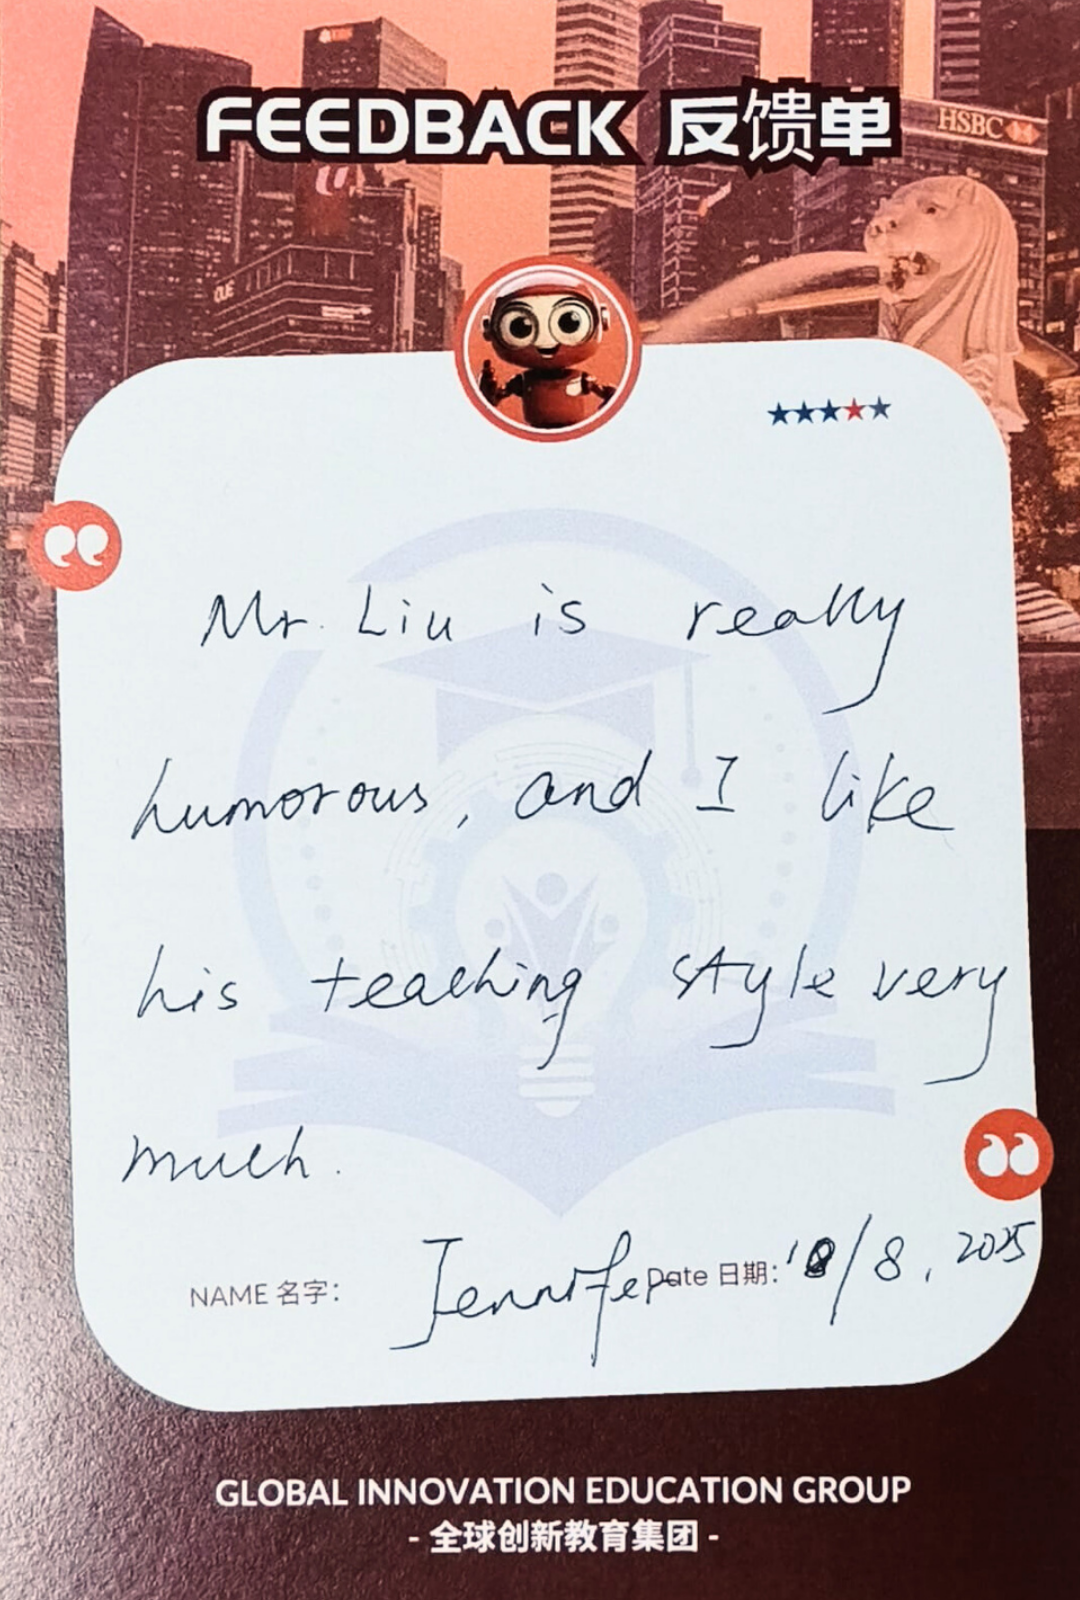 FEEDBACK 反馈单
HSBC
OUE
Mr. Liu is really
humorous, and I like
his teaching style very
much.
NAME 名字: Jennifer Date 日期: /8, 2025
GLOBAL INNOVATION EDUCATION GROUP
- 全球创新教育集团 -